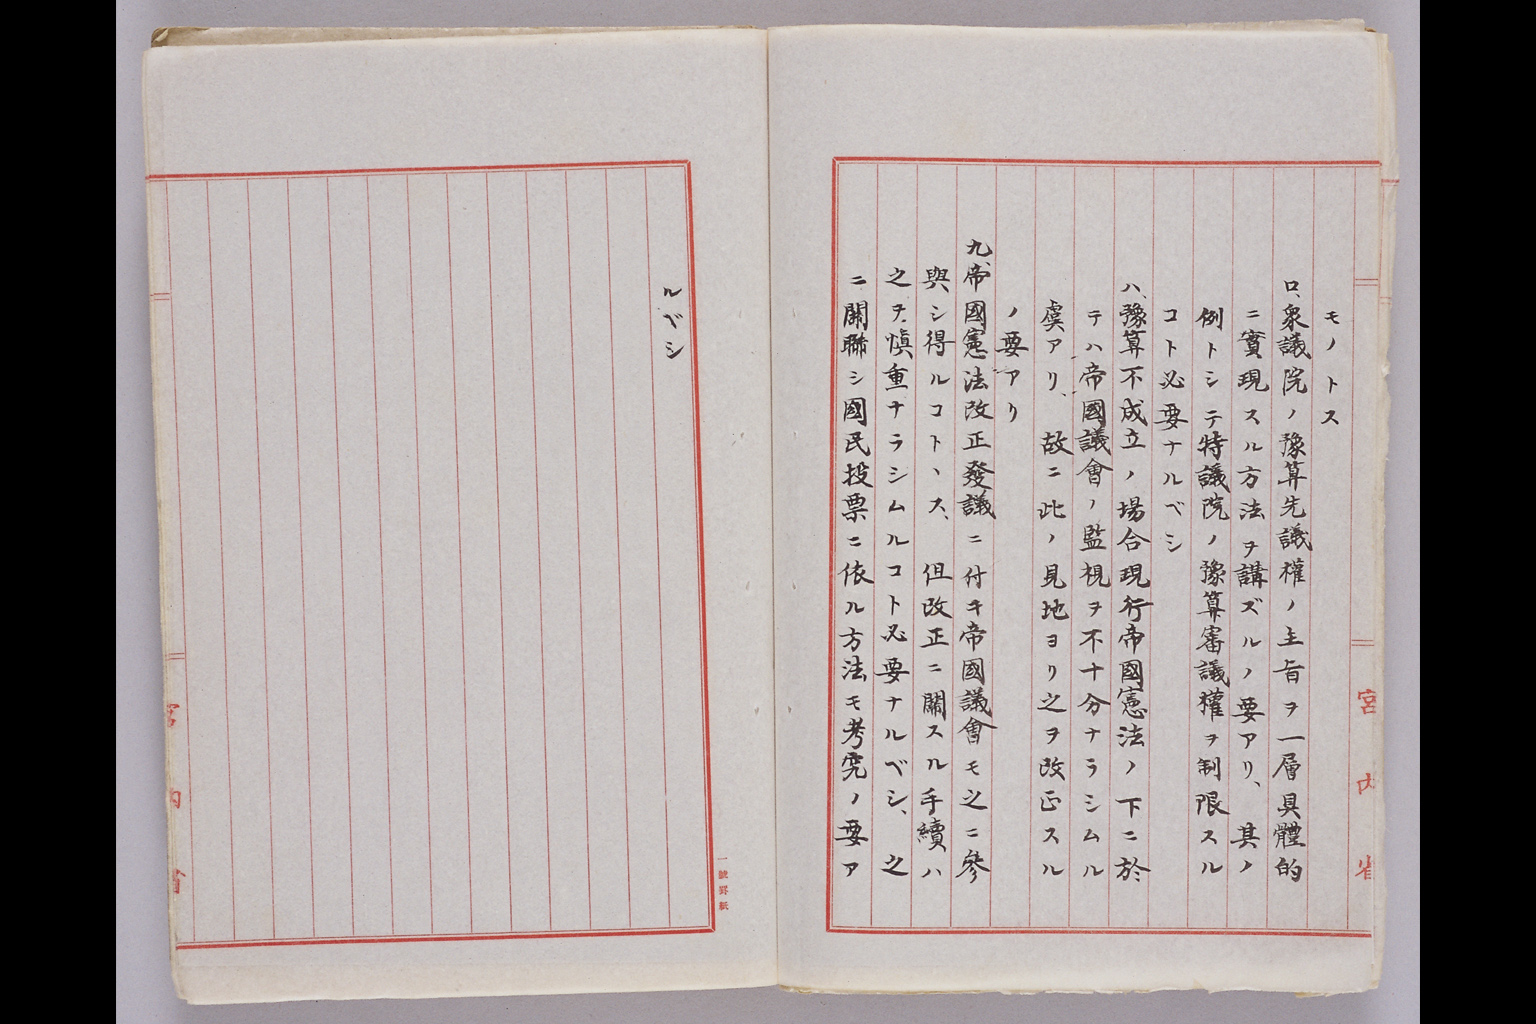 モノトス
ロ、衆議院ノ豫算先議權ノ主旨ヲ一層具體的
ニ實現スル方法ヲ講ズルノ要アリ、其ノ
例トシテ特議院ノ豫算審議權ヲ制限スル
コト必要ナルベシ
ハ、豫算不成立ノ場合現行帝國憲法ノ下ニ於
テハ帝國議會ノ監視ヲ不十分ナラシムル
虞アリ、故ニ此ノ見地ヨリ之ヲ改正スル
ノ要アリ
九、帝國憲法改正發議ニ付キ帝國議會モ之ニ參
與シ得ルコトヽス、但改正ニ關スル手續ハ
之ヲ愼重ナラシムルコト必要ナルベシ、之
ニ關聯シ國民投票ニ依ル方法モ考究ノ要ア
宮内省
一號罫紙
ルベシ
宮内省